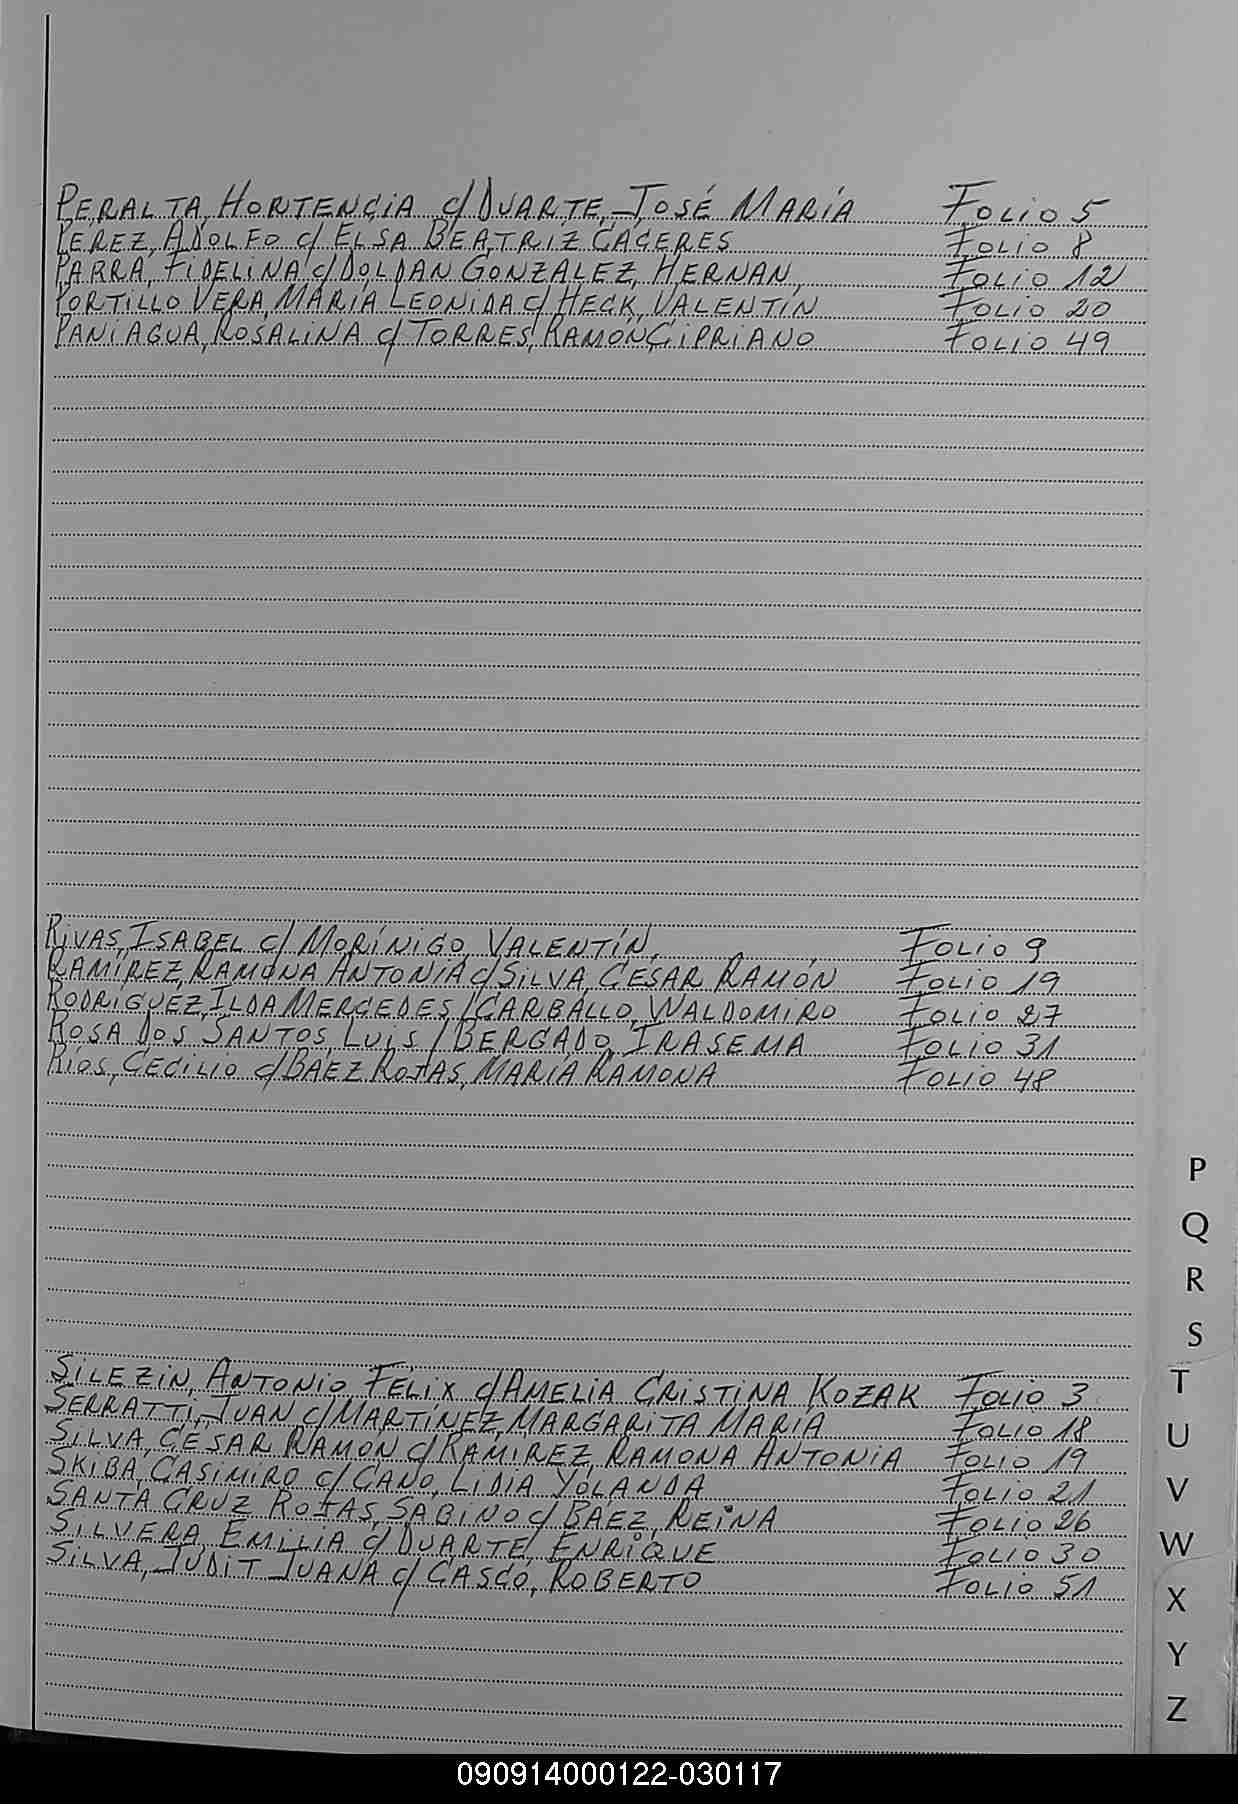 PERALTA, HORTENCIA c/ DUARTE, JOSÉ MARÍA FOLIO 5
PEREZ, ADOLFO c/ ELSA BEATRIZ CÁCERES FOLIO 8
PARRA, FIDELINA c/ DOLDAN GONZALEZ, HERNAN, FOLIO 12
PORTILLO VERA, MARÍA LEONIDA c/ HECK, VALENTÍN FOLIO 20
PANIAGUA, ROSALINA c/ TORRES, RAMON CIPRIANO FOLIO 49
RIVAS, ISABEL c/ MORÍNIGO, VALENTÍN, FOLIO 9
RAMÍREZ, RAMONA ANTONIA c/ SILVA, CESAR RAMÓN FOLIO 19
RODRIGUEZ, ILDA MERCEDES / CARBALLO, WALDOMIRO FOLIO 27
ROSA DOS SANTOS, LUIS / BERGADO, IRASEMA FOLIO 31
RÍOS, CECILIO c/ BÁEZ ROJAS, MARÍA RAMONA FOLIO 48
P
Q
R
S
SILEZIN, ANTONIO FELIX c/ AMELIA CRISTINA KOZAK FOLIO 3
T
SERRATTI, JUAN c/ MARTÍNEZ, MARGARITA MARÍA FOLIO 18
U
SILVA, CÉSAR RAMON c/ RAMIREZ, RAMONA ANTONIA FOLIO 19
SKIBA, CASIMIRO c/ CANO, LIDIA YOLANDA FOLIO 21
V
SANTA CRUZ ROJAS, SABINO c/ BÁEZ, REINA FOLIO 26
SILVERA, EMILIA c/ DUARTE, ENRIQUE FOLIO 30
W
SILVA, JUDIT JUANA c/ CASCO, ROBERTO FOLIO 51
X
Y
Z
090914000122-030117